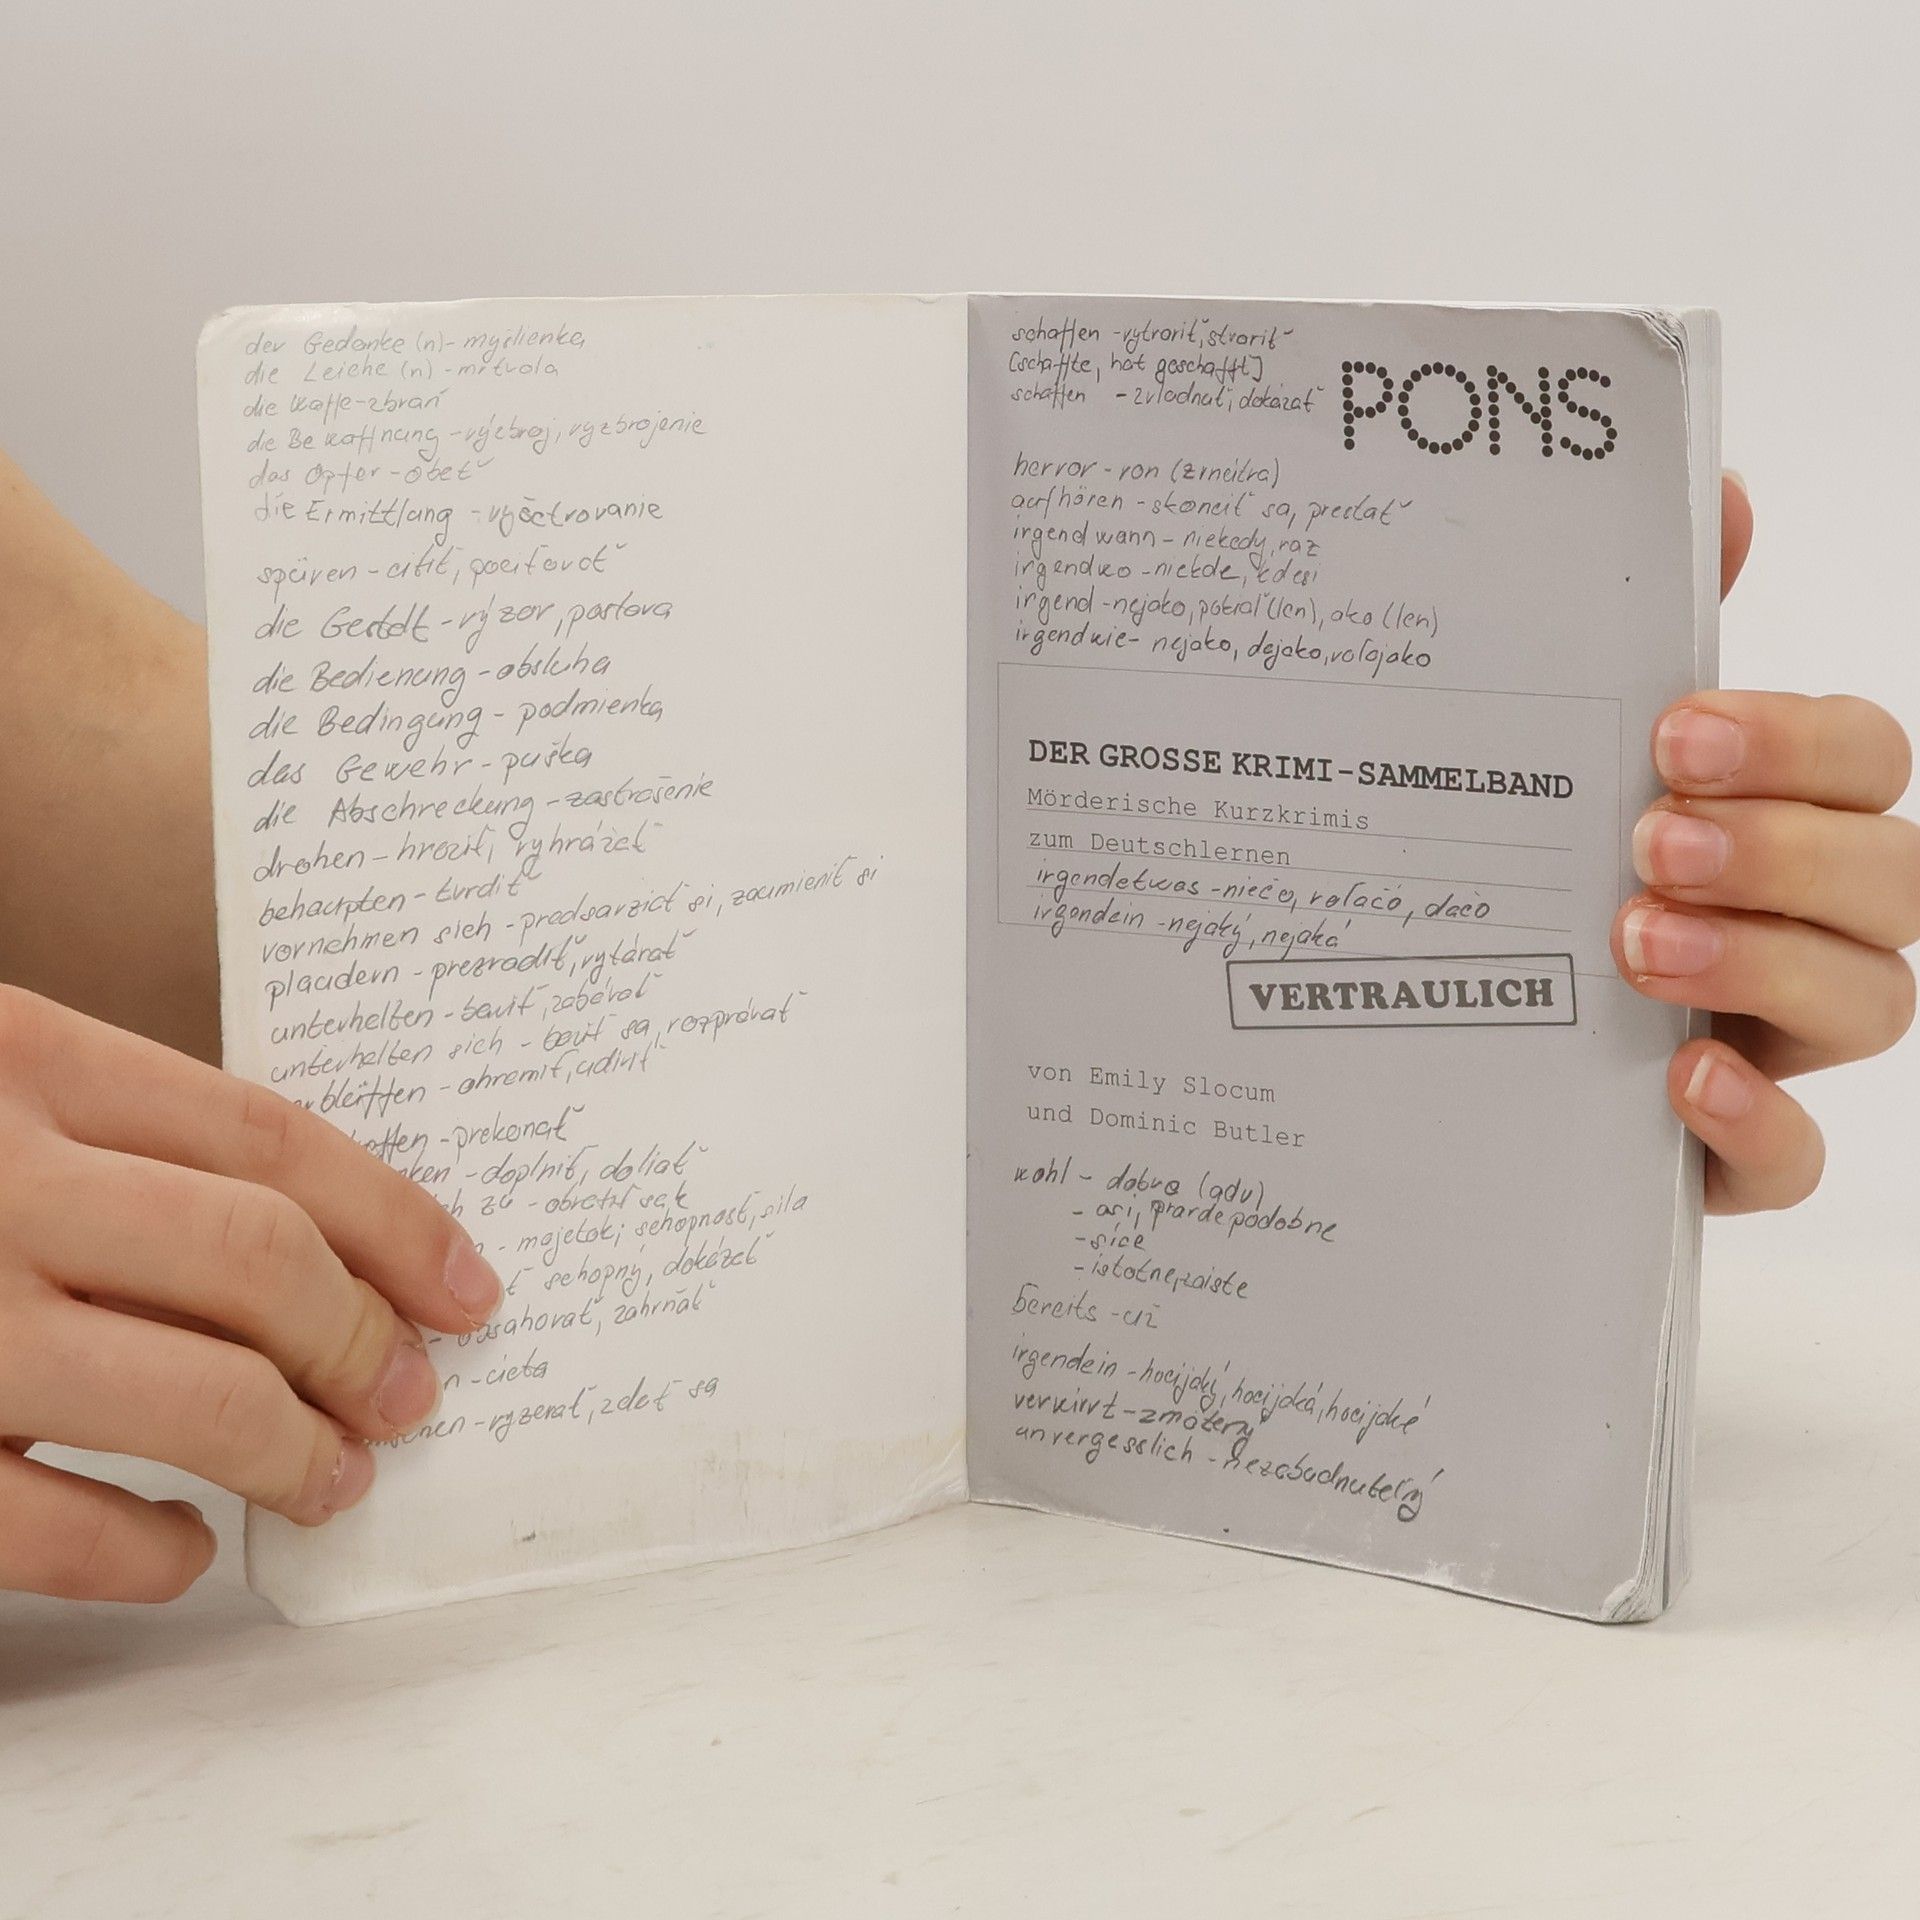 der Gedanke (n) - myšlienka
die Leiche (n) - mŕtvola
die Waffe - zbraň
die Bewaffnung - výzbroj, vyzbrojenie
das Opfer - obeť
die Ermittlung - vyšetrovanie
spüren - cítiť, pociťovať
die Gestalt - výzor, postava
die Bedienung - obsluha
die Bedingung - podmienka
das Gewehr - puška
die Abschreckung - zastrašenie
drohen - hroziť, vyhrážať
behaupten - tvrdiť
vornehmen sich - predsavziať si, zaumieniť si
plaudern - prezradiť, vytárať
unterhalten - baviť, zabávať
unterhalten sich - baviť sa, rozprávať
blüffen - ohromiť, udiviť
- prekonať
- doplniť, doliať
zu - obrátiť sa k
- majetok; schopnosť, sila
schopný, dokázať
- obsahovať, zahrňať
- cieľa
- vyzerať, zdať sa
schaffen - vytvoriť, stvoriť
[schaffte, hat geschafft]
schaffen - zvládnuť, dokázať
PONS
hervor - von (zvnútra)
aufhören - skončiť sa, prestať
irgendwann - niekedy, raz
irgendwo - niekde, kdesi
irgend - nejako, pokiaľ (len), ako (len)
irgendwie - nejako, dajako, voľajako
DER GROSSE KRIMI-SAMMELBAND
Mörderische Kurzkrimis
zum Deutschlernen
irgendetwas - niečo, voľačo, dačo
irgendein - nejaký, nejaká
VERTRAULICH
von Emily Slocum
und Dominic Butler
wohl - dobre (adv)
- asi, pravdepodobne
- síce
- istotne, zaiste
bereits - už
irgendein - hocijaký, hocijaká, hocijaké
verwirrt - zmätený
unvergesslich - nezabudnuteľný